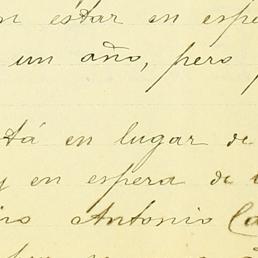 estar en espe
un año, pero
tá en lugar de
y en espera de
Antonio Ca